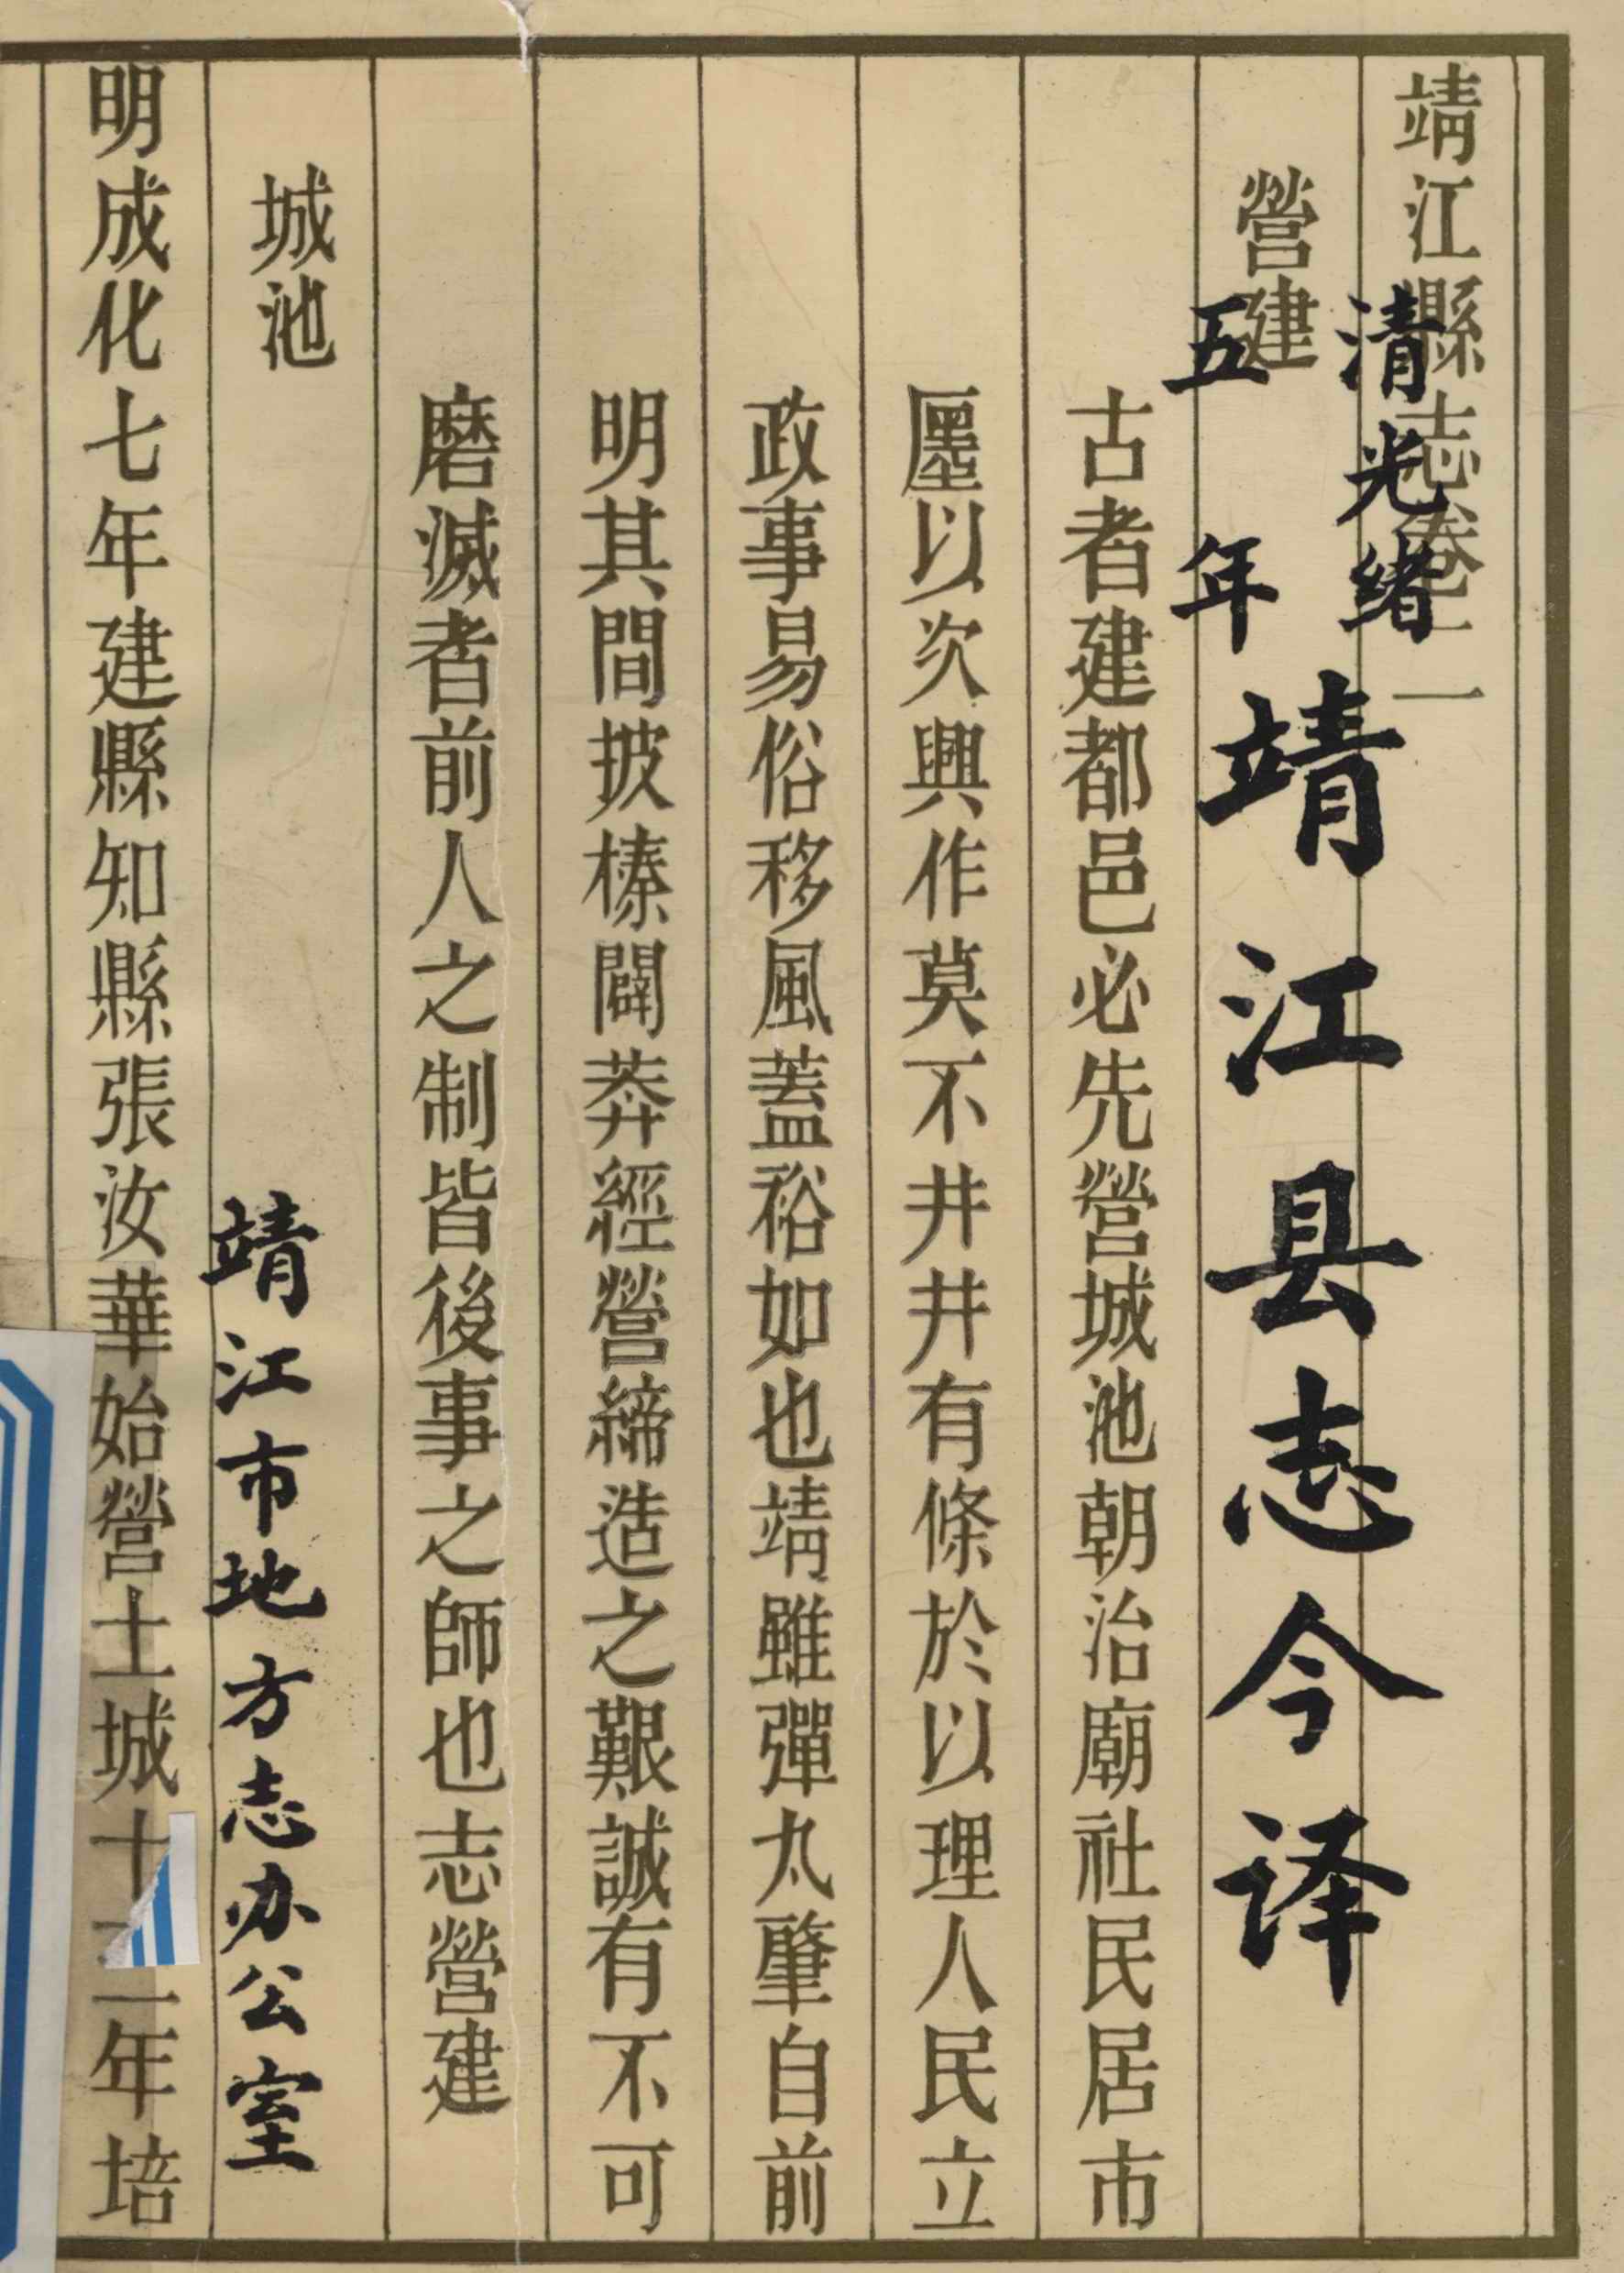 靖江縣志卷二
營建
古者建都邑必先營城池朝治廟社民居市
厘以次興作莫不井井有條於以理人民立
政事易俗移風蓋裕如也靖雖彈丸肇自前
明其間披榛闢莽經營締造之艱誠有不可
磨滅者前人之制皆後事之師也志營建
城池
明成化七年建縣知縣張汝華始營土城十二年培
清光绪
五年
靖江县志今译
靖江市地方志办公室